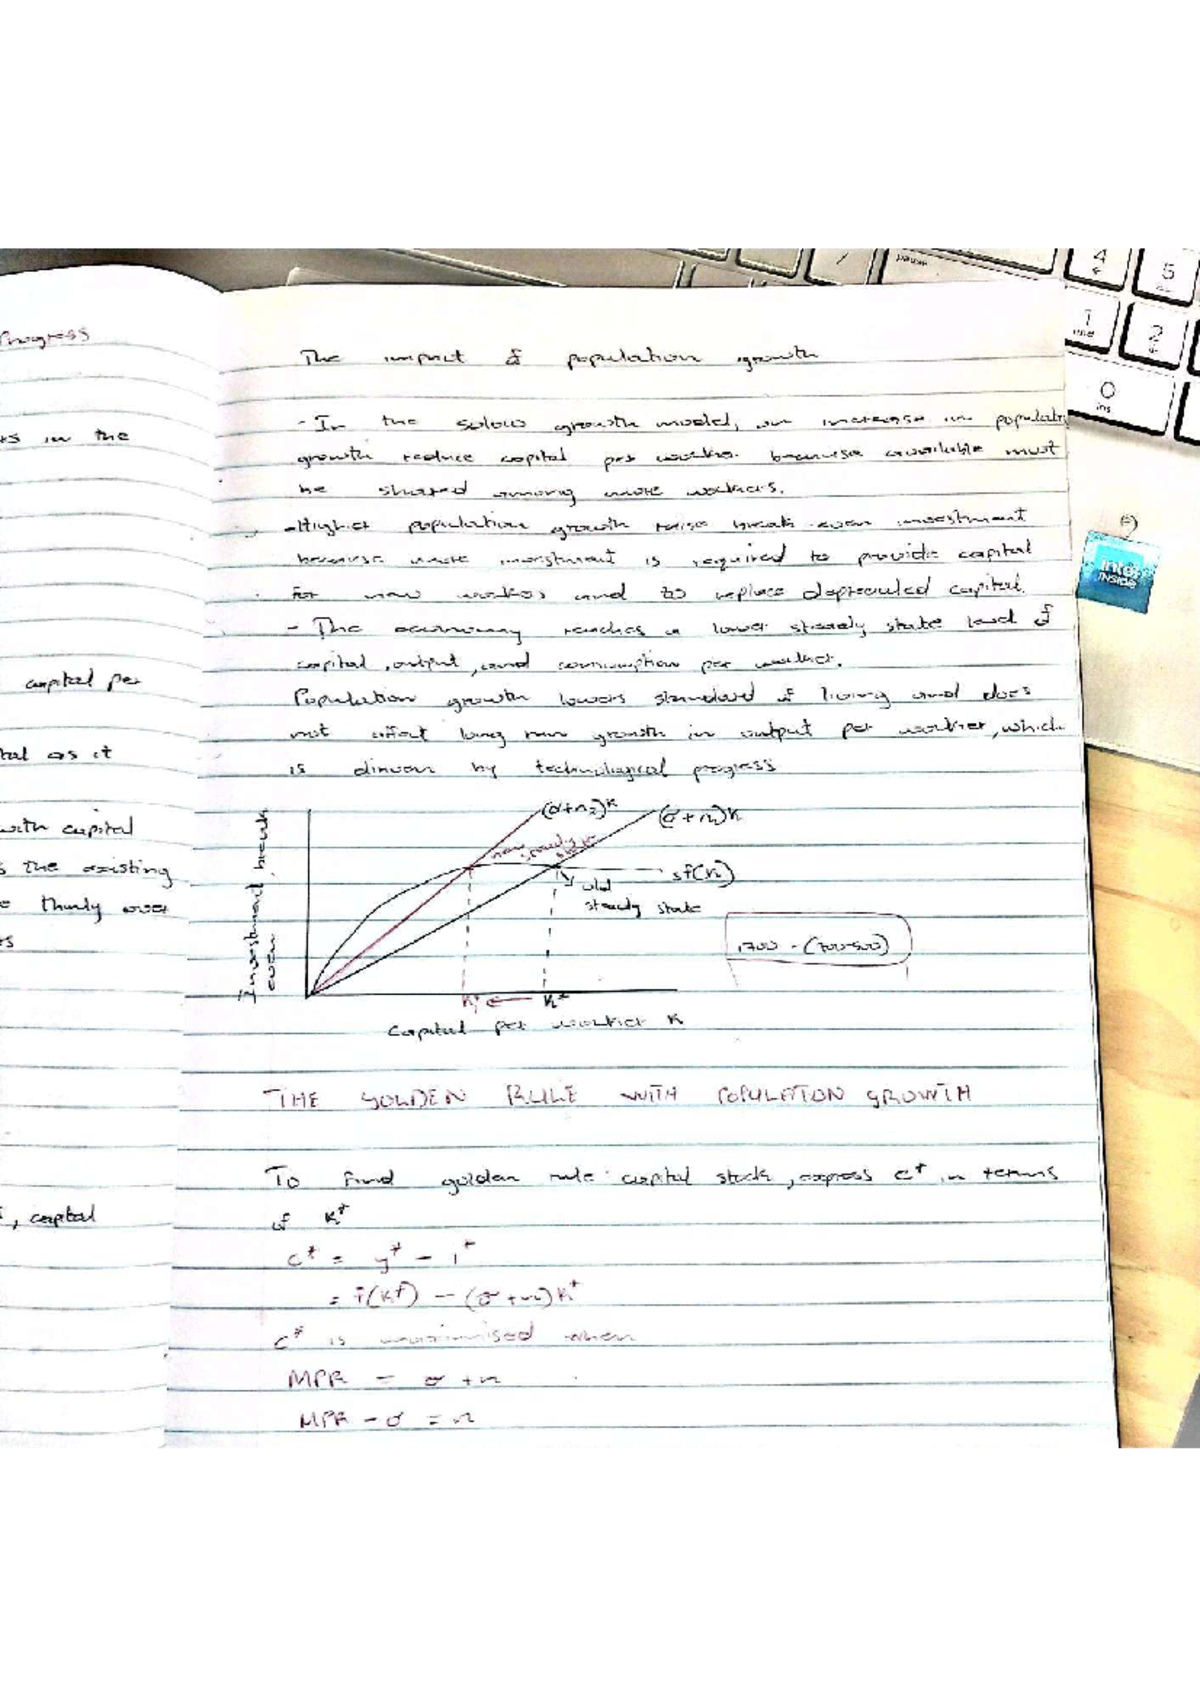 Progress
in the
capital per
as it
with capital
the existing
thinly over
, capital
The impact of population growth
- In the solow growth model, an increase in populatn
growth reduce capital per worker because available must
be shared among more workers.
- Higher population growth raise break even investment
because more investment is required to provide capital
for new workers and to replace depreciated capital.
- The economy reaches a lower steady state level of
capital, output, and consumption per worker.
Population growth lowers standard of living and does
not affect long run growth in output per worker, which
is driven by technological progress
Investment, break
even
(σ+n₂)k
(σ+n)k
new steady
state
sf(k)
old
steady state
1700 - (700-500)
k* ← k*
Capital per worker k
THE GOLDEN RULE WITH POPULATION GROWTH
To find golden rule capital stock, express c* in terms
of k*
c* = y* - i*
= f(k*) - (σ+n)k*
c* is maximised when
MPK = σ + n
MPK - σ = n
pause
4
5
1
end
2
0
ins
intel
INSIDE